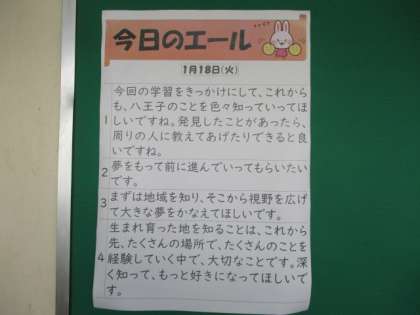 今日のエール
1月18日(火)
今回の学習をきっかけにして、これから
も、八王子のことを色々知っていってほ
1 しいですね。発見したことがあったら、
周りの人に教えてあげたりできると良
いですね。
2 夢をもって前に進んでいってもらいたい
です。
3 まずは地域を知り、そこから視野を広げ
て大きな夢をかなえてほしいです。
生まれ育った地を知ることは、これから
先、たくさんの場所で、たくさんのことを
4 経験していく中で、大切なことです。深
く知って、もっと好きになってほしいで
す。